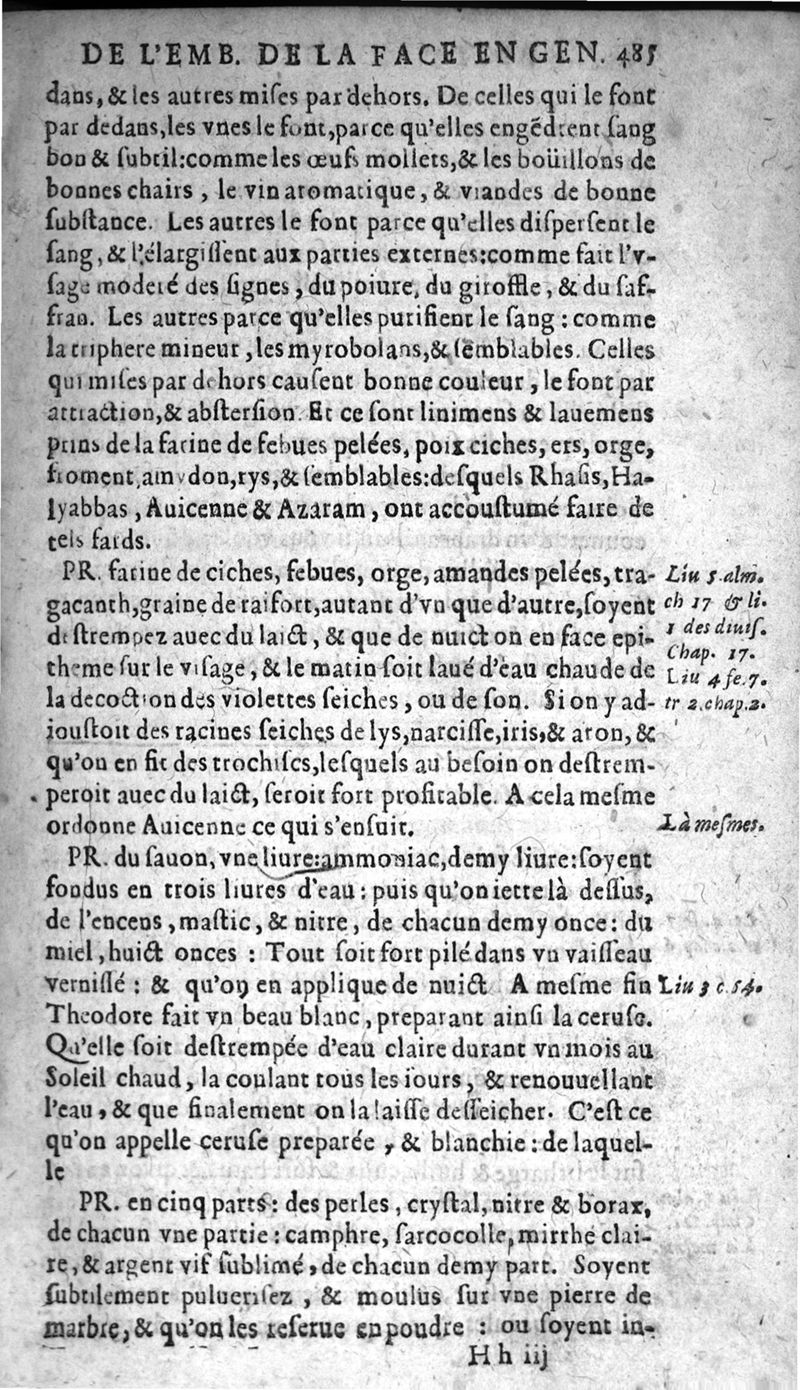 DE L'EMB. DE LA FACE EN GEN. 485
dans, & les autres miſes par dehors. De celles qui le font
par dedans, les vnes le font, parce qu'elles engẽdrent ſang
bon & ſubtil: comme les œufs mollets, & les boüillons de
bonnes chairs, le vin aromatique, & viandes de bonne
ſubſtance. Les autres le font parce qu'elles diſperſent le
ſang, & l'élargiſſent aux parties externes: comme fait l'v-
ſage moderé des figues, du poiure, du giroffle, & du ſaf-
fran. Les autres parce qu'elles purifient le ſang: comme
la triphere mineur, les myrobolans, & ſemblables. Celles
qui miſes par dehors cauſent bonne couleur, le font par
attraction, & abſterſion. Et ce ſont linimens & lauemens
prins de la farine de febues pelées, poix ciches, ers, orge,
froment, amydon, rys, & ſemblables: deſquels Rhaſis, Ha-
lyabbas, Auicenne & Azaram, ont accouſtumé faire de
tels fards.
PR. farine de ciches, febues, orge, amandes pelées, tra-
gacanth, graine de raifort, autant d'vn que d'autre, ſoyent
deſtrempez auec du laict, & que de nuict on en face epi-
theme ſur le viſage, & le matin ſoit laué d'eau chaude de
la decoction des violettes ſeiches, ou de ſon. Si on y ad-
iouſtoit des racines ſeiches de lys, narciſſe, iris, & aron, &
qu'on en fit des trochiſcs, leſquels au beſoin on deſtrem-
peroit auec du laict, ſeroit fort profitable. A cela meſme
ordonne Auicenne ce qui s'enſuit.
PR. du ſauon, vne liure: ammoniac, demy liure: ſoyent
fondus en trois liures d'eau: puis qu'on iette là deſſus,
de l'encens, maſtic, & nitre, de chacun demy once: du
miel, huict onces: Tout ſoit fort pilé dans vn vaiſſeau
verniſſé: & qu'on en applique de nuict A meſme fin
Theodore fait vn beau blanc, preparant ainſi la ceruſe.
Qu'elle ſoit deſtrempée d'eau claire durant vn mois au
Soleil chaud, la coulant tous les iours, & renouuellant
l'eau, & que finalement on la laiſſe deſſeicher. C'eſt ce
qu'on appelle ceruſe preparée, & blanchie: de laquel-
le
PR. en cinq parts: des perles, cryſtal, nitre & borax,
de chacun vne partie: camphre, ſarcocolle, mirrhe clai-
re, & argent vif ſublimé, de chacun demy part. Soyent
ſubtilement pulueriſez, & moulus ſur vne pierre de
marbre, & qu'on les reſerue en poudre: ou ſoyent in-
H h iij
Liu 5. alm.
ch 17 & li.
1 des diuiſ.
Chap. 17.
Liu 4 fe. 7.
tr 2. chap. 2.
Là meſmes.
Liu 3 c 54.